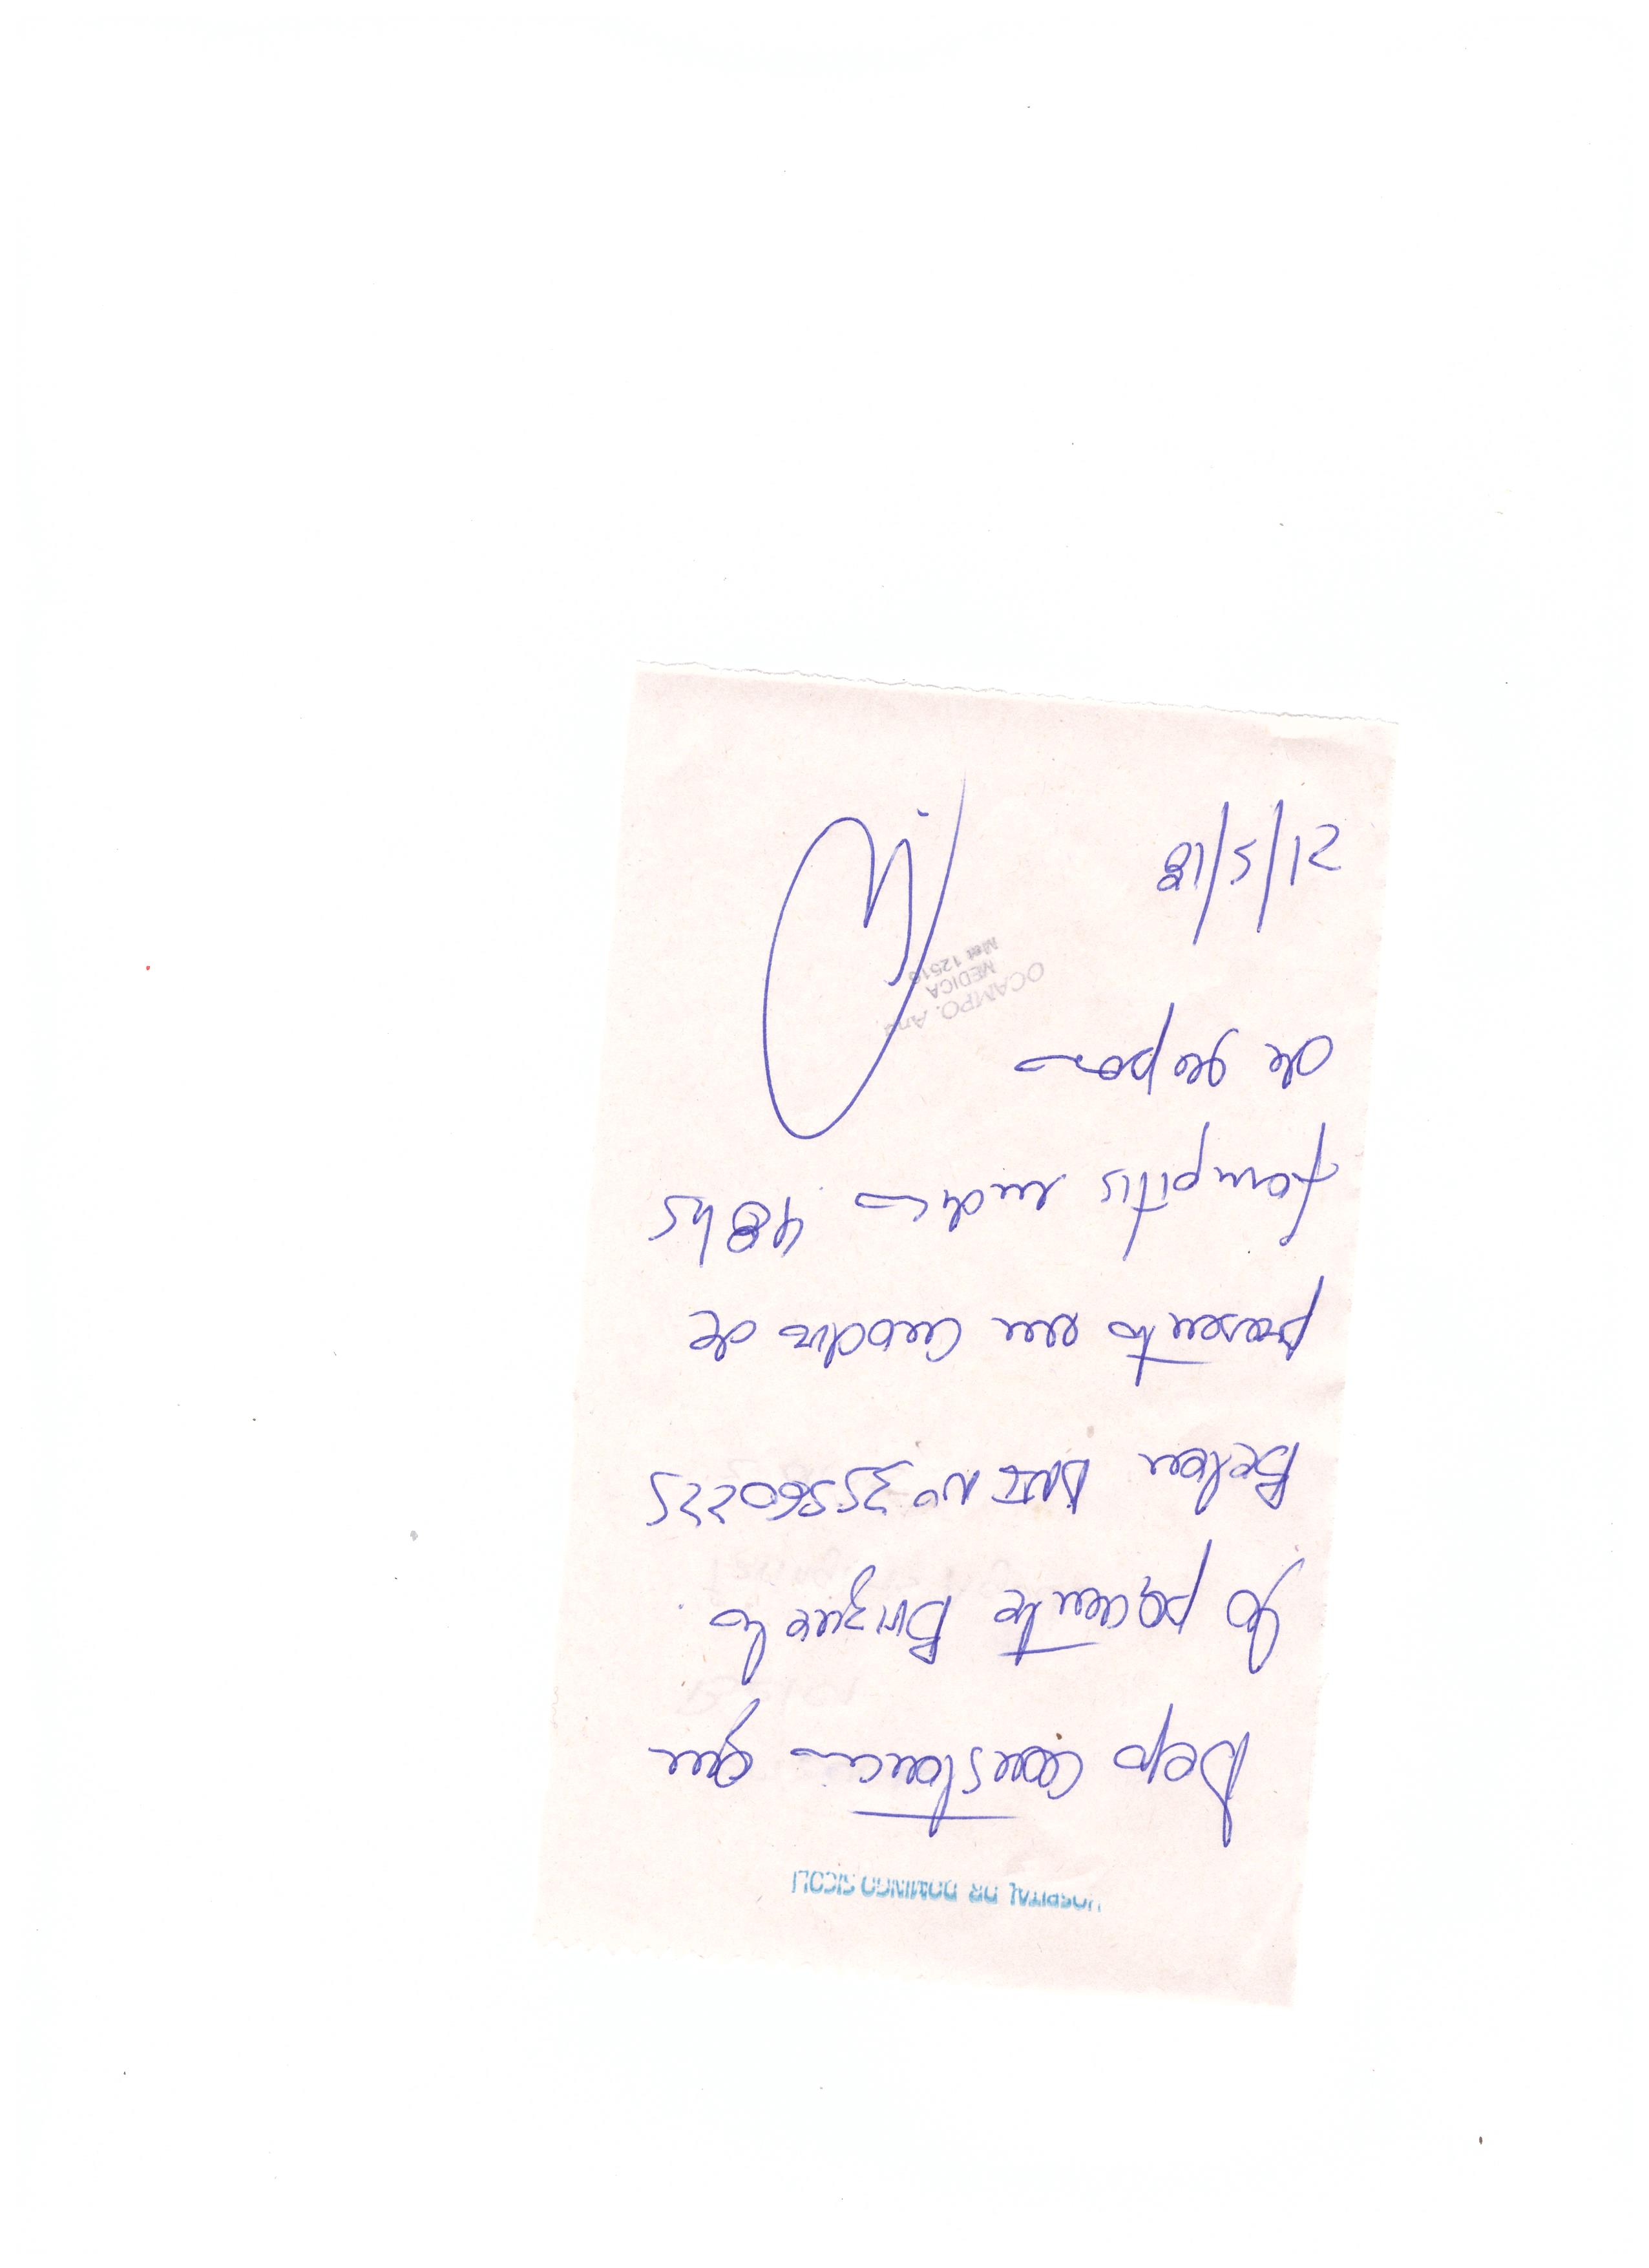 HOSPITAL DR DOMINGO SICOLI
Dejo constancia que
la paciente
Belen DNI N° 35560225
presenta un cuadro de
faringitis indico 48 hs
de reposo
OCAMPO, Ana
MEDICA
Mat 12516
21/5/18